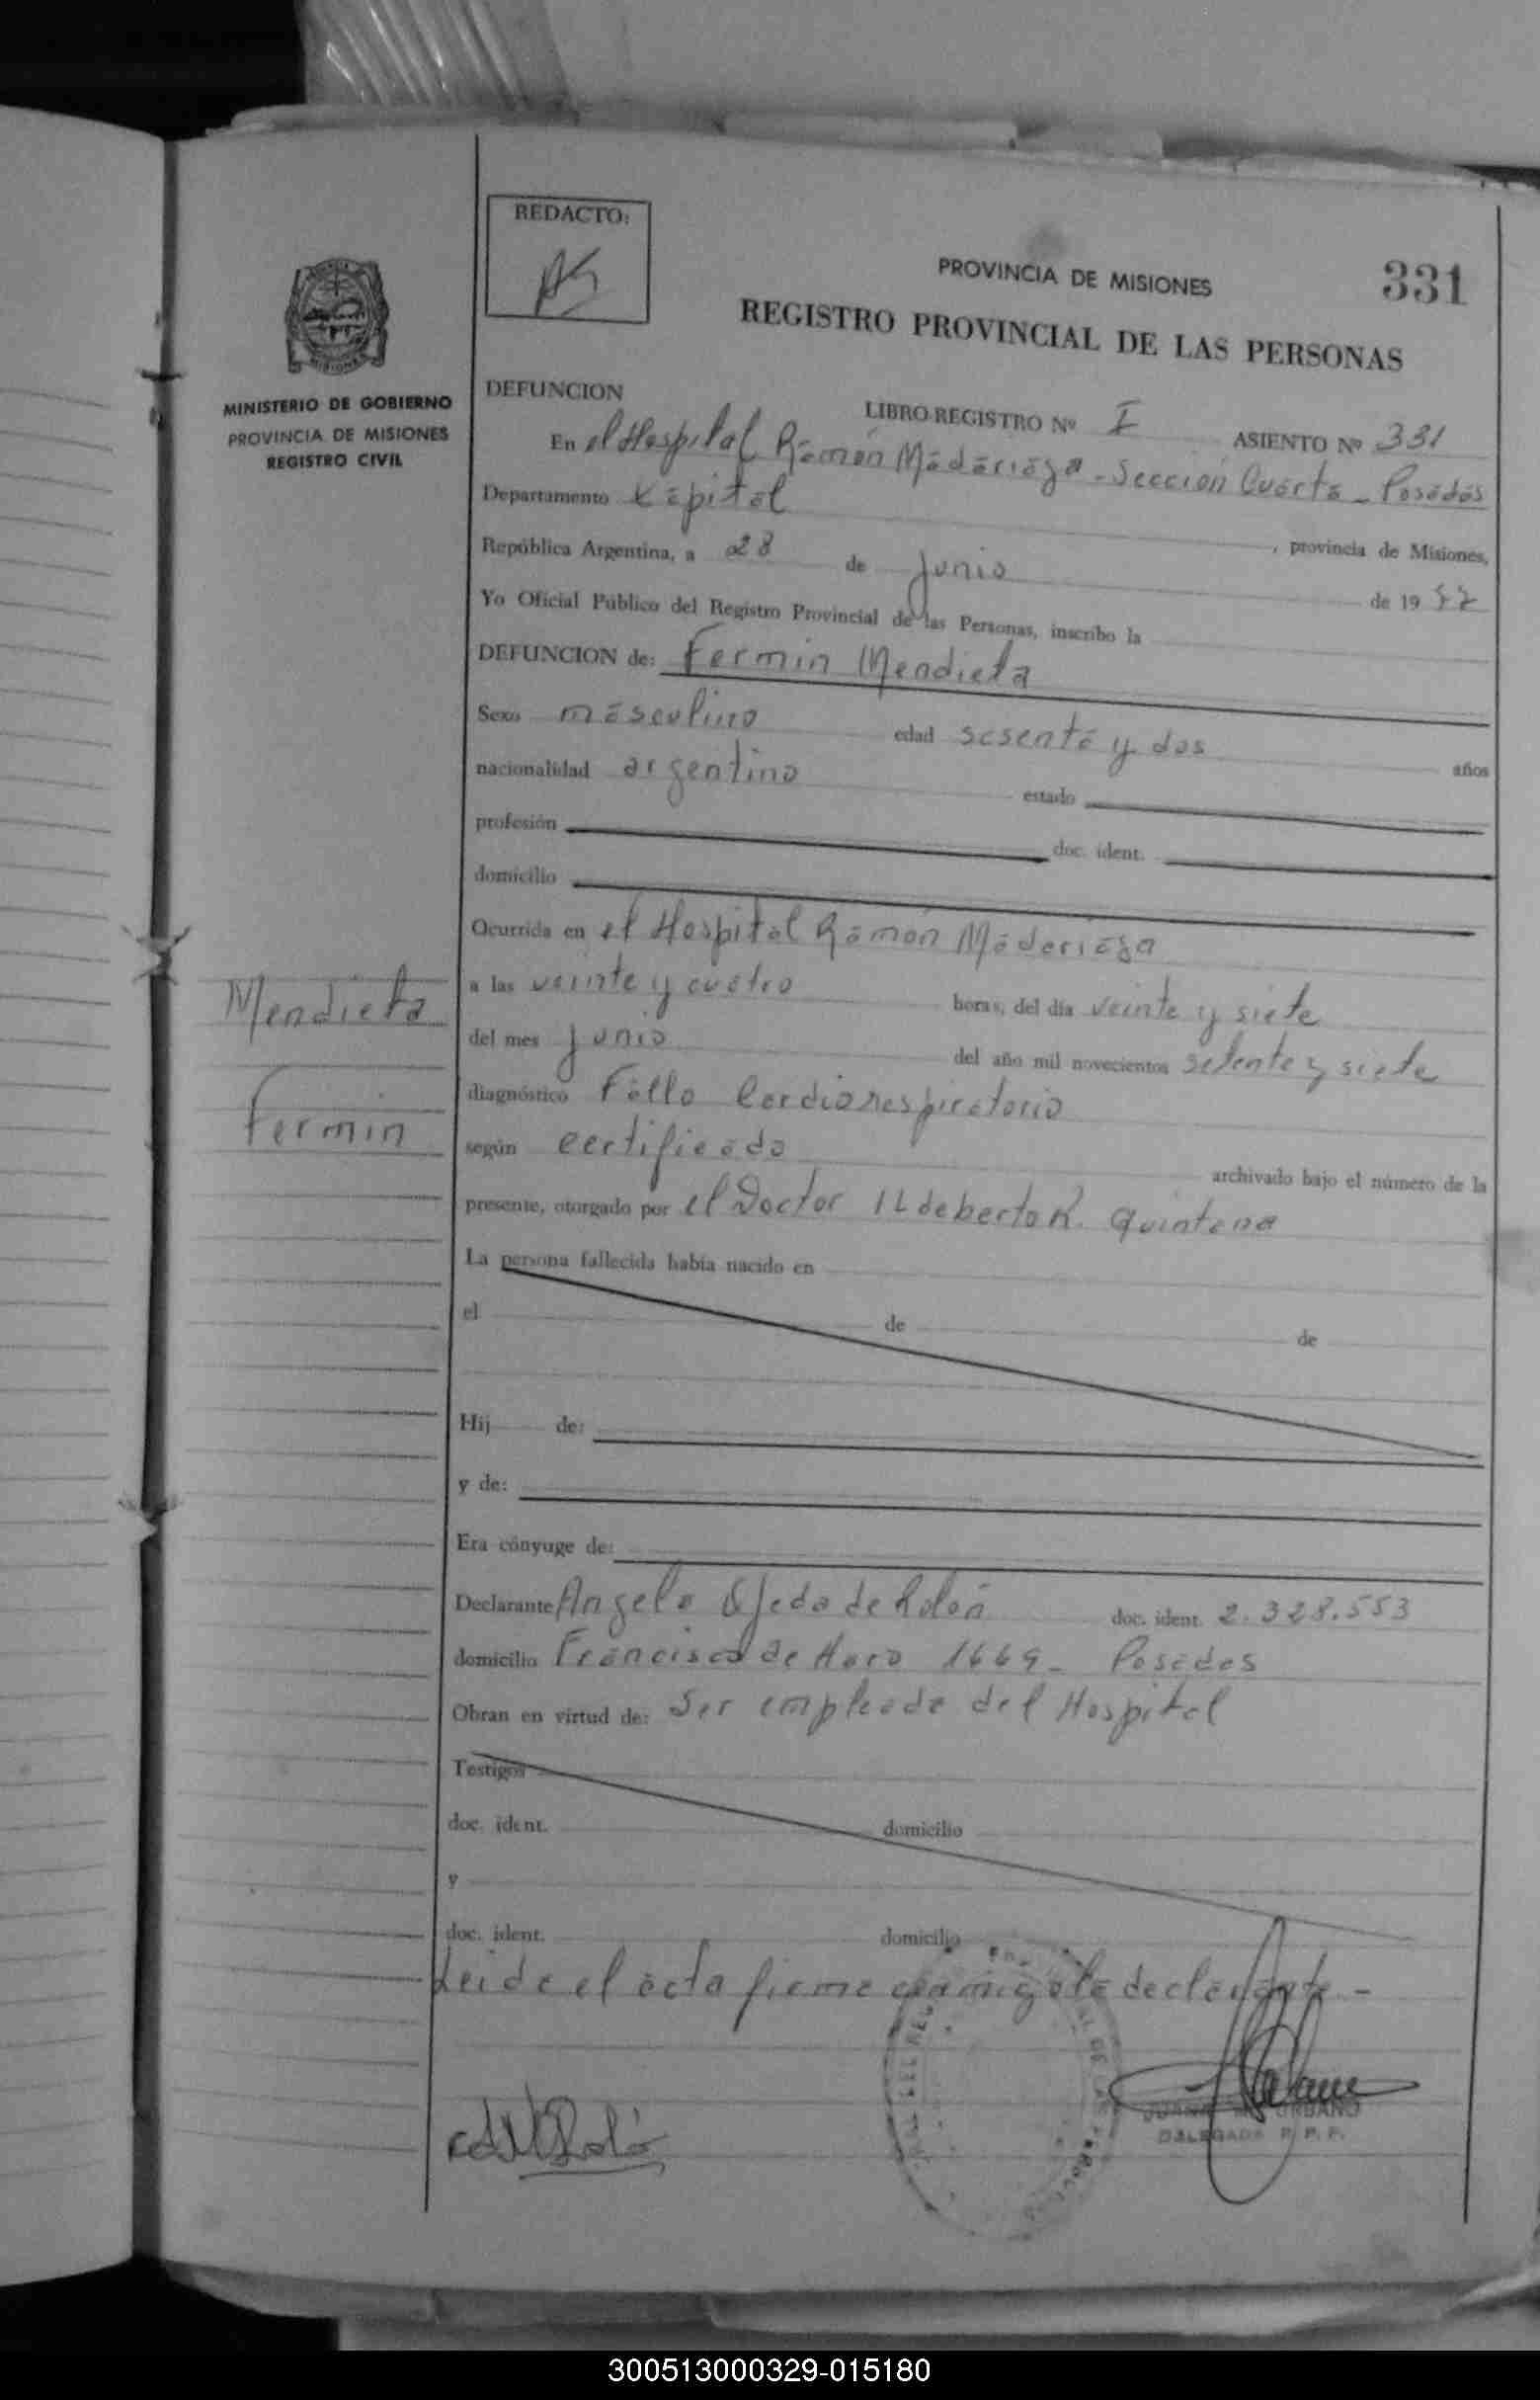 REDACTO:
PROVINCIA DE MISIONES
331
REGISTRO PROVINCIAL DE LAS PERSONAS
MINISTERIO DE GOBIERNO
PROVINCIA DE MISIONES
REGISTRO CIVIL
DEFUNCION
LIBRO REGISTRO Nº I ASIENTO Nº 331
En el Hospital Ramón Madariaga - Sección Cuarta - Posadas
Departamento Capital, provincia de Misiones,
República Argentina, a 28 de junio de 1977
Yo Oficial Público del Registro Provincial de las Personas, inscribo la
DEFUNCION de: Fermin Mendieta
Sexo masculino edad sesenta y dos años
nacionalidad argentino estado
profesión doc. ident.
domicilio
Ocurrida en el Hospital Ramón Maderiaga
a las veinte y cuatro horas, del día veinte y siete
del mes junio del año mil novecientos setenta y siete
Mendieta
Fermin
diagnóstico Fallo Cardiorespiratorio
según certificado archivado bajo el número de la
presente, otorgado por el Doctor ILdeberto R. Quintana
La persona fallecida había nacido en
el de de
Hij de:
y de:
Era cónyuge de:
Declarante Angela Ojeda de Rolón doc. ident. 2.328.553
domicilio Francisco de Haro 1669 - Posadas
Obran en virtud de: Ser empleada del Hospital
Testigos
doc. ident. domicilio
y
doc. ident. domicilio
Leida el acta firma conmigo la declarante -
JUANA URBANO
DELEGADA R. P. P.
300513000329-015180